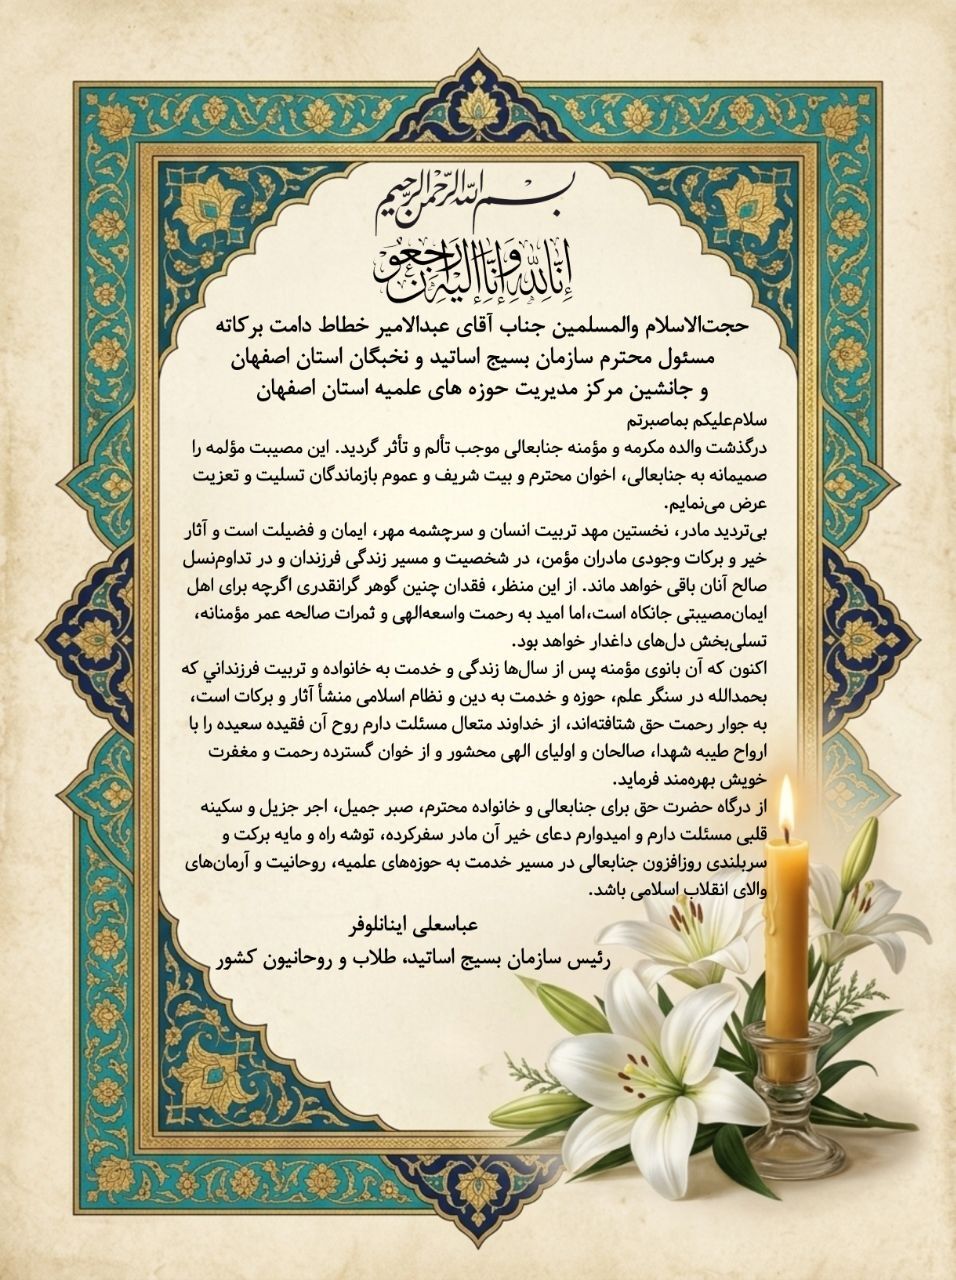 بسم الله الرحمن الرحیم
إنا لله وإنا إلیه راجعون
حجت‌الاسلام والمسلمین جناب آقای عبدالامیر خطاط دامت برکاته
مسئول محترم سازمان بسیج اساتید و نخبگان استان اصفهان
و جانشین مرکز مدیریت حوزه های علمیه استان اصفهان
سلام‌علیکم بماصبرتم
درگذشت والده مکرمه و مؤمنه جنابعالی موجب تألم و تأثر گردید. این مصیبت مؤلمه را
صمیمانه به جنابعالی، اخوان محترم و بیت شریف و عموم بازماندگان تسلیت و تعزیت
عرض می‌نمایم.
بی‌تردید مادر، نخستین مهد تربیت انسان و سرچشمه مهر، ایمان و فضیلت است و آثار
خیر و برکات وجودی مادران مؤمن، در شخصیت و مسیر زندگی فرزندان و در تداوم‌نسل
صالح آنان باقی خواهد ماند. از این منظر، فقدان چنین گوهر گرانقدری اگرچه برای اهل
ایمان‌مصیبتی جانکاه است،اما امید به رحمت واسعه‌الهی و ثمرات صالحه عمر مؤمنانه،
تسلی‌بخش دل‌های داغدار خواهد بود.
اکنون که آن بانوی مؤمنه پس از سال‌ها زندگی و خدمت به خانواده و تربیت فرزنداني که
بحمدالله در سنگر علم، حوزه و خدمت به دین و نظام اسلامی منشأ آثار و برکات است،
به جوار رحمت حق شتافته‌اند، از خداوند متعال مسئلت دارم روح آن فقیده سعیده را با
ارواح طیبه شهدا، صالحان و اولیای الهی محشور و از خوان گسترده رحمت و مغفرت
خویش بهره‌مند فرماید.
از درگاه حضرت حق برای جنابعالی و خانواده محترم، صبر جمیل، اجر جزیل و سکینه
قلبی مسئلت دارم و امیدوارم دعای خیر آن مادر سفرکرده، توشه راه و مایه برکت و
سربلندی روزافزون جنابعالی در مسیر خدمت به حوزه‌های علمیه، روحانیت و آرمان‌های
والای انقلاب اسلامی باشد.
عباسعلی اینانلوفر
رئیس سازمان بسیج اساتید، طلاب و روحانیون کشور